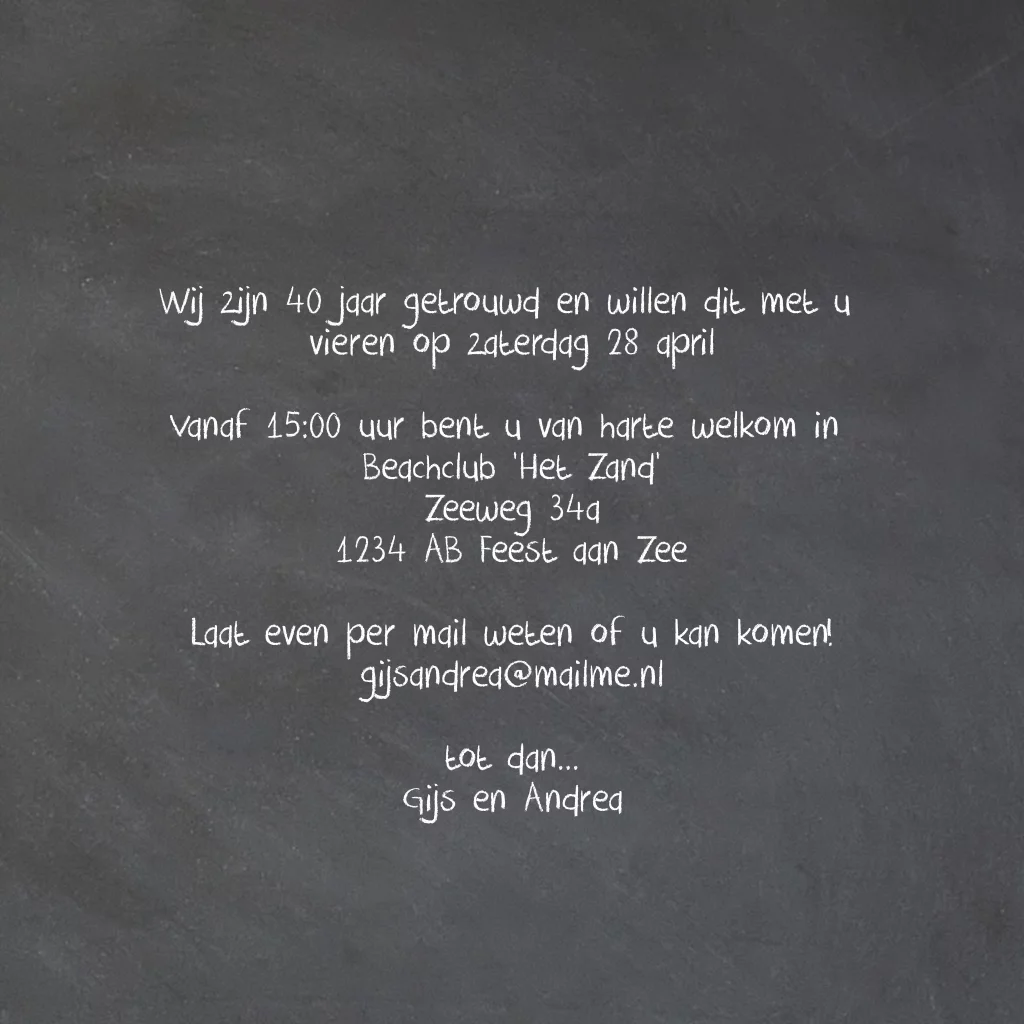 Wij zijn 40 jaar getrouwd en willen dit met u
vieren op zaterdag 28 april
Vanaf 15:00 uur bent u van harte welkom in
Beachclub 'Het Zand'
Zeeweg 34a
1234 AB Feest aan Zee
Laat even per mail weten of u kan komen!
gijsandrea@mailme.nl
tot dan...
Gijs en Andrea